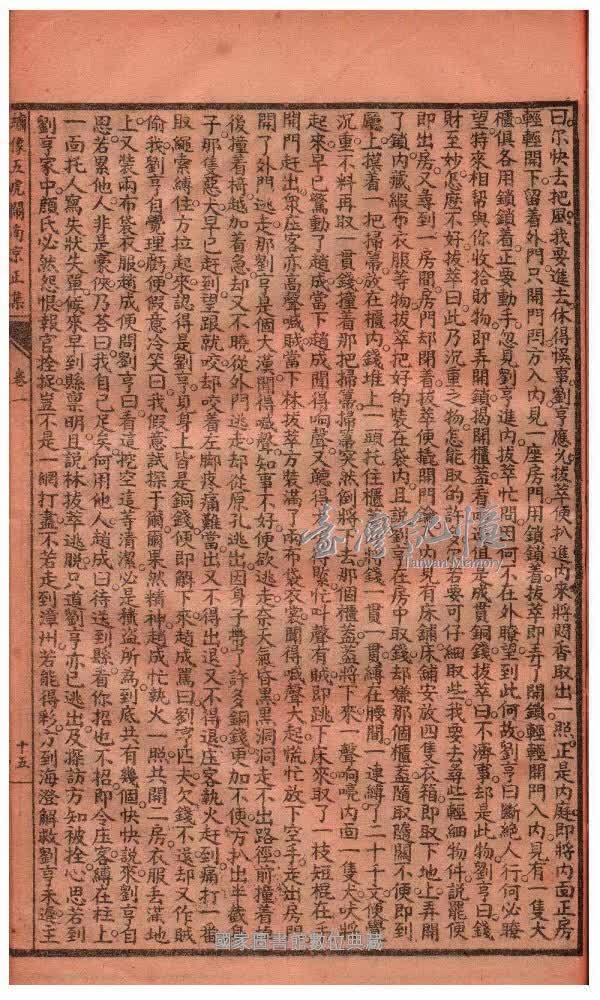 曰尔快去把風我要進去体得悞事劉亨應允拔萃便扒進內來將悶香取出一照正是內庭即將內面正房
輕輕開下留着外門只開門閂方入內見一座房門用鎖鎖着拔萃即弄了開鎖輕輕開門入內見有一隻大
櫃俱各用鎖鎖着正要動手忽見劉亨進內拔萃忙問因何不在外瞭望到此何故劉亨曰斷絕人行何必瞭
望特來相幫與你收拾財物即弄開鎖揭開櫃蓋看 俱是成貫銅錢拔萃曰不濟事却是此物劉亨曰錢
財至妙怎麼不好拔萃曰此乃沉重之物怎能取的許 尔若要可仔細取些我要去尋些輕細物件說罷便
即出房又尋到一房間房門却閉着拔萃便撬開門 內見有床鋪床鋪安放四隻衣箱即取下地上弄開
了鎖內藏緞布衣服等物拔萃把好的裝在袋內且說劉亨在房中取錢却嫌那個櫃蓋隨取隨關不便即到
廳上摸着一把掃箒放在櫃內錢堆上一頭托住櫃蓋 將錢一貫一貫縛在腰間一連縛了二十千文便覺
沉重不料再取一貫錢撞着那把掃箒掃箒突然倒將 去那個櫃蓋蓋將下來一聲响喨內面一隻犬吠將
起來早已驚動了趙成當下趙成聞得响聲又聽得 緊忙叫聲有賊即跳 床來取了一枝短棍在手
開門赶出衆座客亦高聲喊賊當下林拔萃方裝滿了兩布袋衣裳聞得喊聲大起慌忙放下空手走出房門
開了外門逃走那劉亨是個大漢聞得喊聲知事不好便欲逃走奈天氣昏黑黑洞洞走不出路徑前撞着
後撞着椅越加着急却又不曉從外門逃走却從原孔逃出因身子帶了許多銅錢更加不便方扒出半截身
子那隻惡犬早已赶到望跟就咬却咬着左脚疼痛難當出又不得出退又不得退庄客執火赶到痛打一番
取繩索縛住方拉起來認得是劉亨貞身上皆是銅錢便即觧下來趙成罵曰劉亨匹夫欠錢不還却又作賊
偷我劉亨自覺理虧便假意冷笑曰我假意試探于爾爾果然精神趙成忙執火一照共開二房衣服丟滿地
上又裝兩布袋衣服趙成便問劉亨曰看這挖空這等清潔必是積盜所為到底共有幾個快快說來劉亨自
思若累他人非是豪俠乃答曰我自己足矣何用他人趙成曰待送到縣看你招也不招即令庄客縛在柱上
一面托人寫失狀失單候來早到縣稟明且説林拔萃逃脱只道劉亨亦已逃出及探訪方知被拴心思若到
劉亨家中顔氏必然怨恨報官拴捉豈不是一網打盡不若走到漳州若能得彩 到海澄解救劉亨禾遲主
繡像五虎鬧南京正集
卷一
十五
臺灣記憶
Taiwan Memory
國家圖書館數位典藏